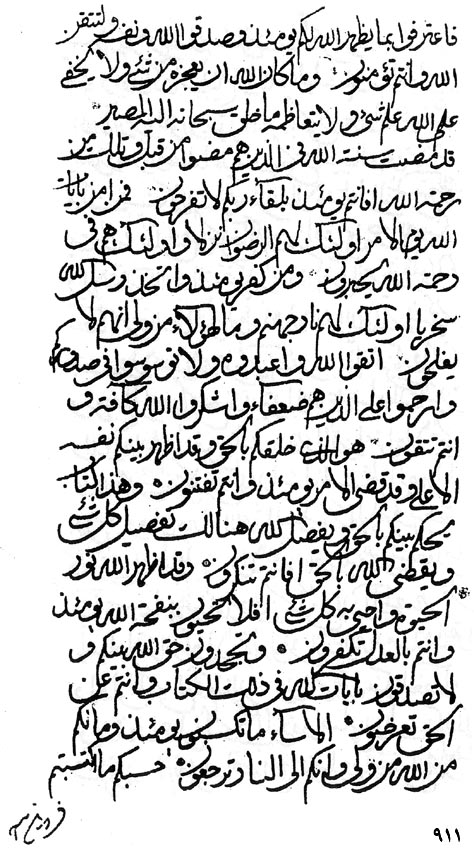 فاعترفوا بما يظهر الله لكم يومئذ وصدقوا الله ونفسه ولتتقن
الله وانتم تؤمنون وما كان الله ان يعجزه من شئ ولا يخفى
على الله علم شئ ولا يتعاظمه ما خلق سبحانه اليه المصير
قد مضت سنة الله فى الذين هم مضوا من قبل وتلك من
رحمة الله افانتم يومئذ بلقاء ربكم لا تفرحون فمن امن بايات
الله يوم الامر اولئك لهم الرضوان نزلا واولئك هم فى
رحمة الله يحبرون ومن كفر يومئذ واتخذ رسل الله
سخريا اولئك لهم نار جهنم وما لهؤلاء من ولى انهم لا
يفلحون اتقوا الله واعبدوه ولا توسوسوا فى صدوركم
وارحموا على الذين هم ضعفاء واشكروا الله كافة و
انتم تتقون هو الذى خلقكم بالحق وقد اظهر بينكم نفسه
الاعلى وقد قضى الامر يومئذ وانتم تفتنون وهذا الكتاب
يحكم بينكم بالحق ويفصل الله هنالك تفصيل كل شئ
ويقضى الله بالحق افانتم تنكرون وقد اظهر الله نور
الحيوة واحيى به كل شئ افلا تحيون بنفحة الله يومئذ
وانتم بالعدل تكفرون وتجحدون حق الله بينكم و
لا تصدقون بايات الله فى ذلك الكتاب وانتم عن
الحق تعرضون الا ساء ما تكسبون يومئذ وما لكم
من الله من ولى وانكم الى النار ترجعون حسبكم ما اكتسبتم
٩١١